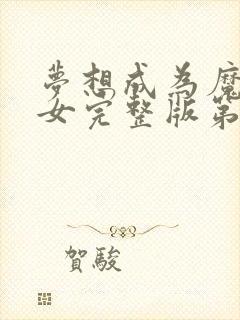 夢想成為魔
女完整版第
賀駿